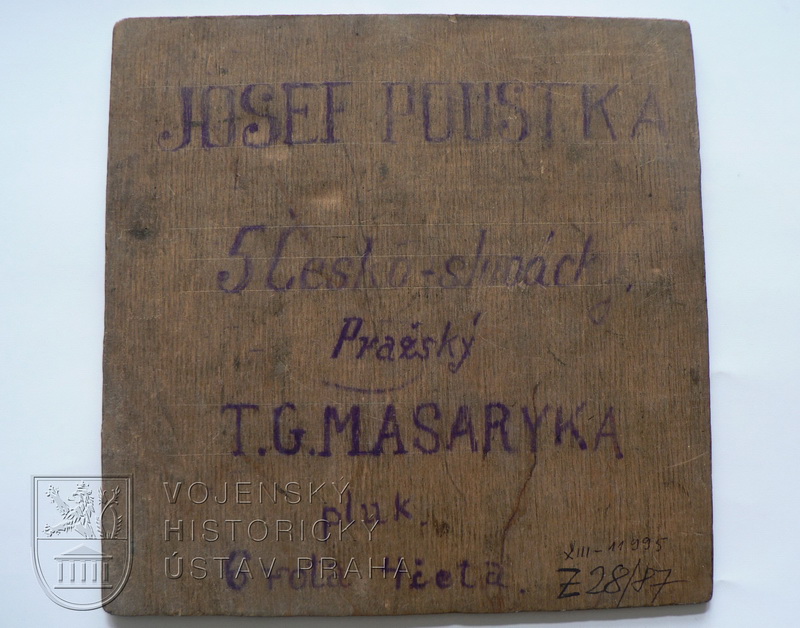 JOSEF POUSTKA
5 Česko-slovácký
Pražský
T.G.MASARYKA
pluk.
6 rota
XIII-11995
Z 28/87
VOJENSKÝ
HISTORICKÝ
ÚSTAV PRAHA